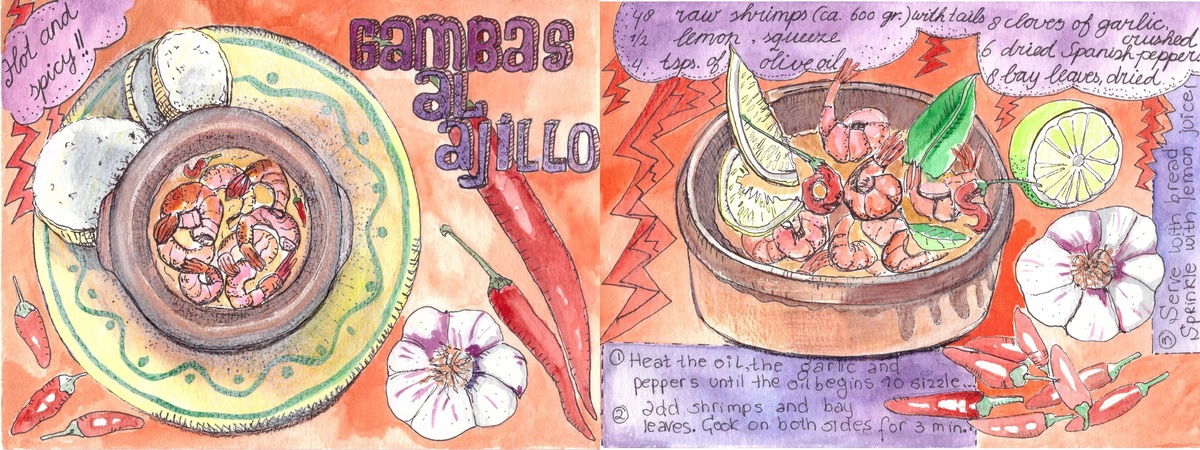 Hot and
spicy!!
GAMBAS
AL
AJILLO
48 raw shrimps (ca. 600 gr.) with tails
1/2 lemon, squeeze
4 tsps. of olive oil
8 cloves of garlic,
crushed
6 dried Spanish peppers
8 bay leaves, dried
① Heat the oil, the garlic and
peppers until the oil begins to sizzle...
② add shrimps and bay
leaves. Cook on both sides for 3 min.
③ Serve with bread
Sprinkle with lemon juice!